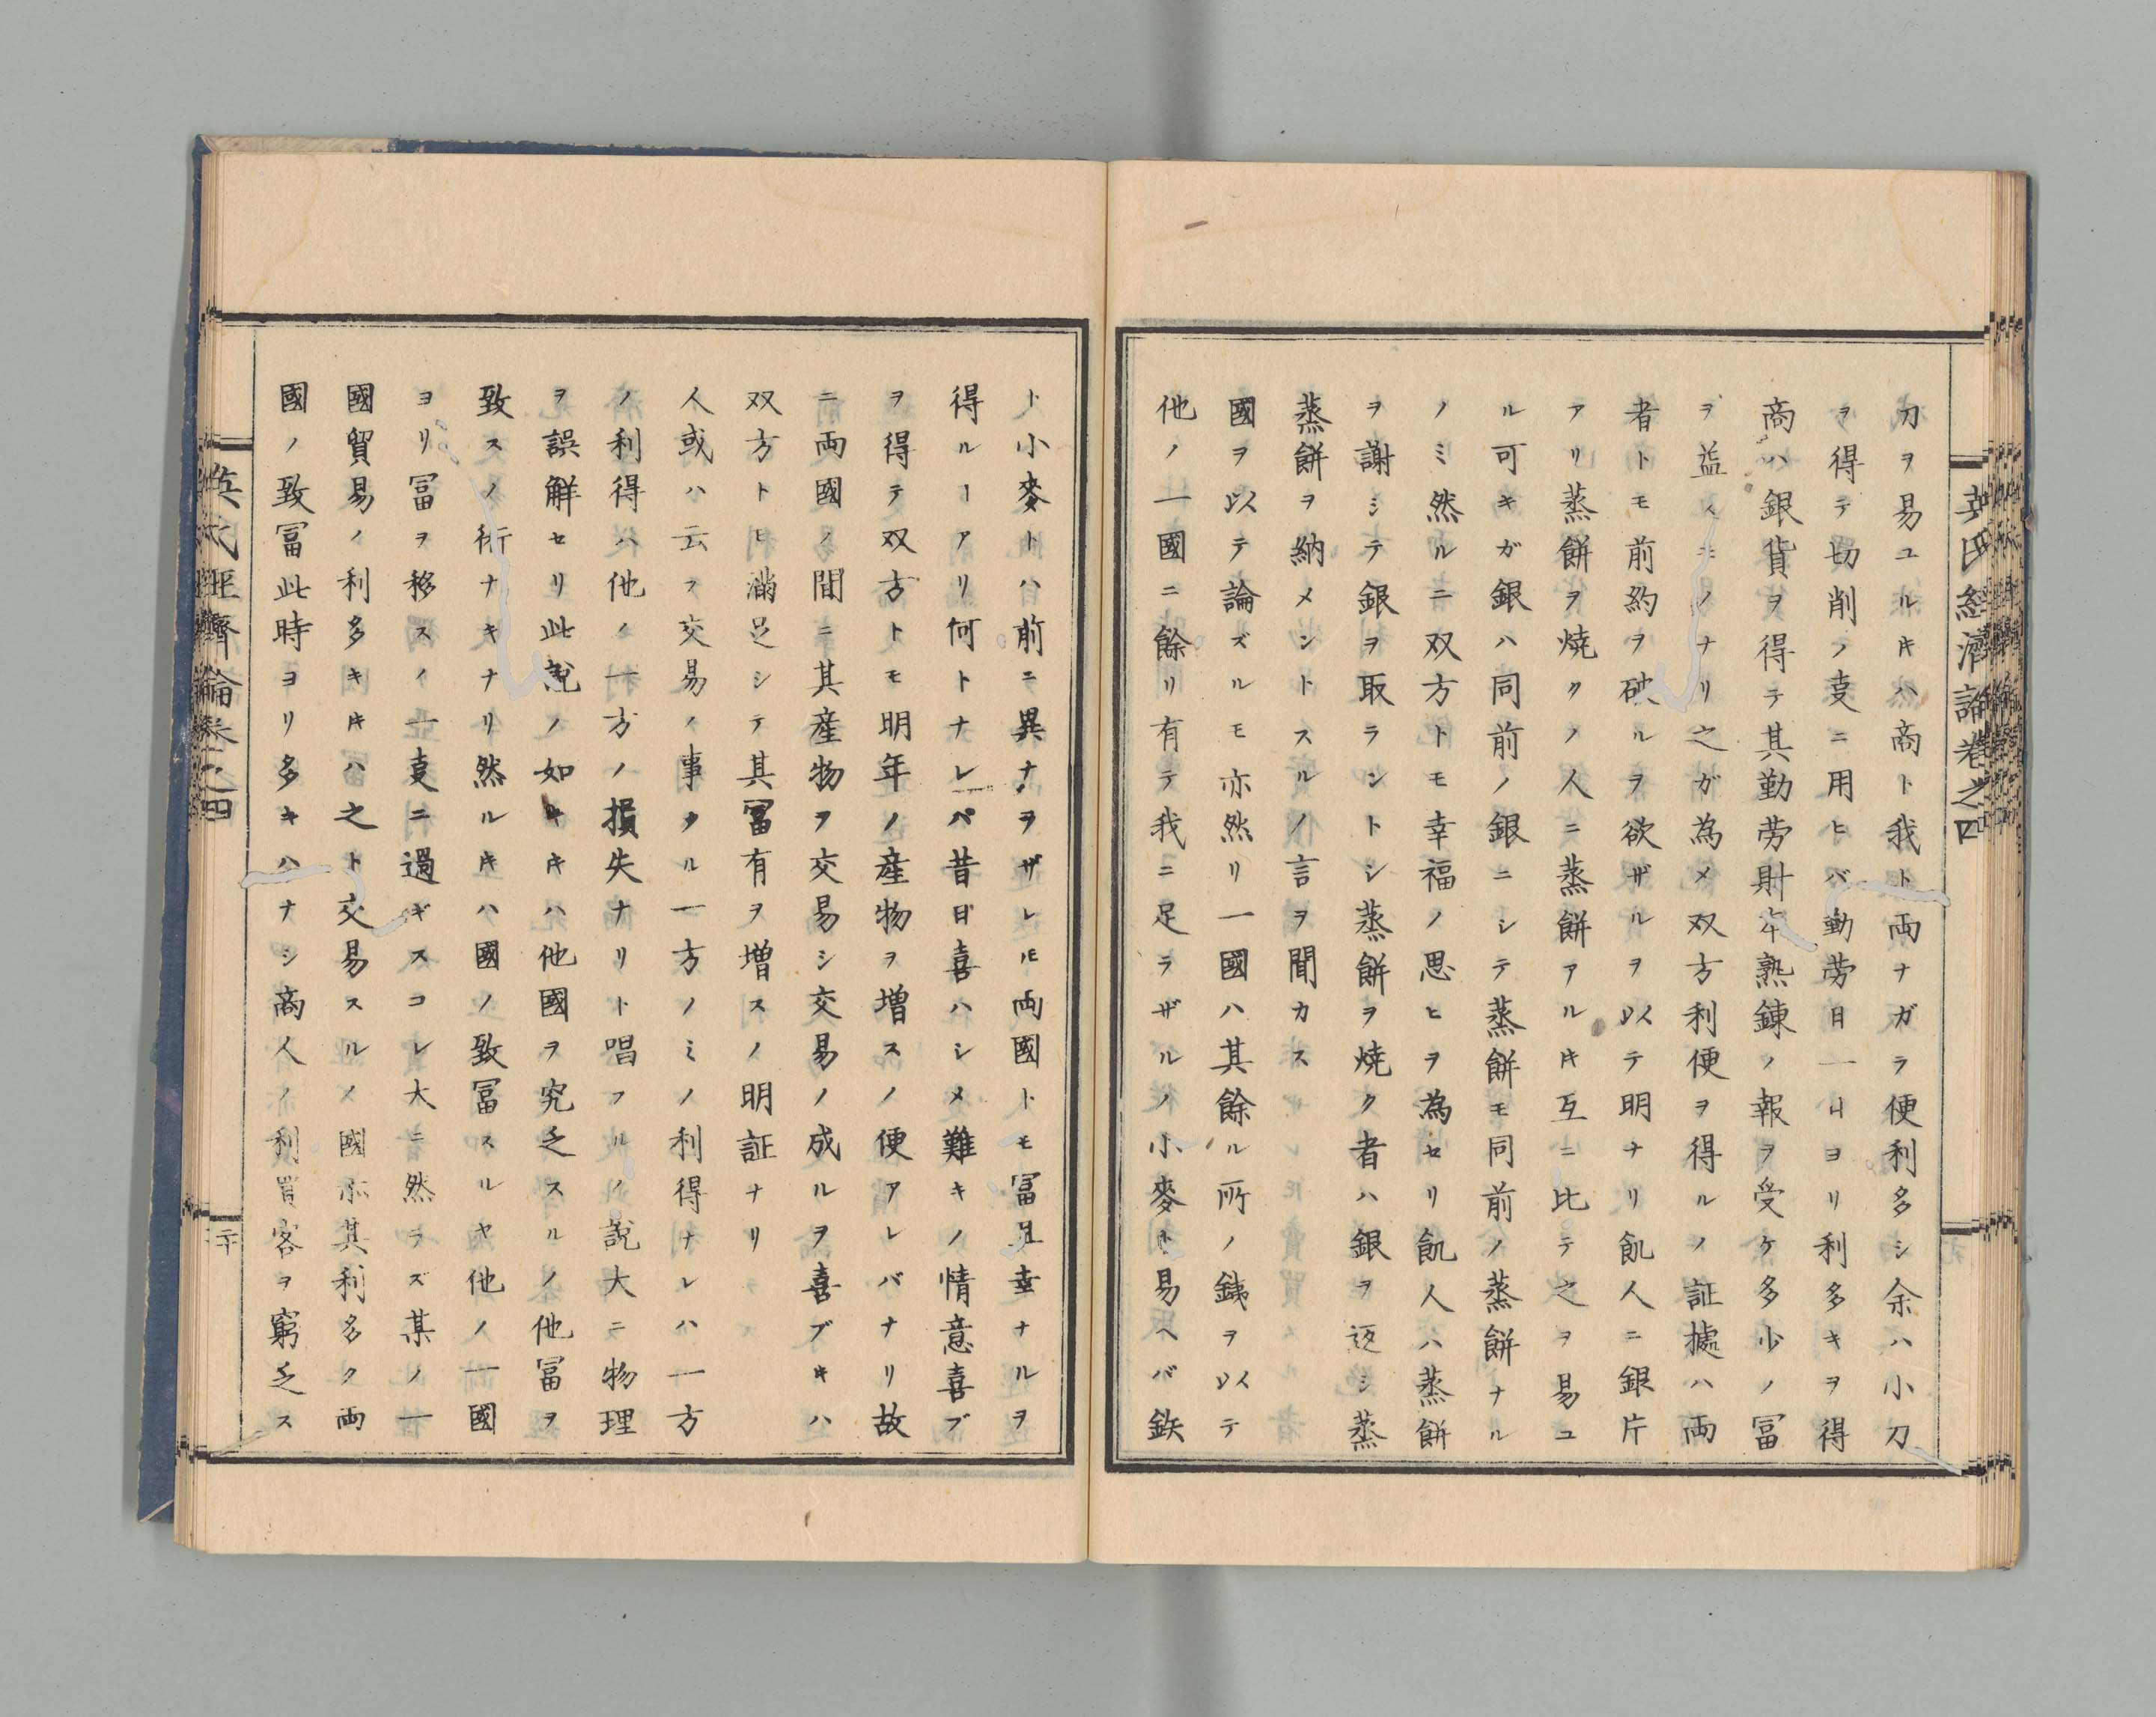 英氏經濟論卷之四
刀ヲ易ユルキハ商ト我ト両ナガラ便利多シ余ハ小刀
ヲ得テ切削ノ叓ニ用ヒバ動劳日一ヨリ利多キヲ得
商ハ銀貨ヲ得テ其勤劳財本熟錬ノ報ヲ受ケ多少ノ冨
ヲ益スモノナリ之ガ為メ双方利便ヲ得ルノ証據ハ両
者トモ前約ヲ破ルヲ欲ザルヲ以テ明ナリ飢人ニ銀片
アリ蒸餅ヲ焼クノ人ニ蒸餅アルキ互ニ比テ之ヲ易ユ
ル可キガ銀ハ同前ノ銀ニシテ蒸餅モ同前ノ蒸餅ナル
ノミ然ルニ双方トモ幸福ノ思ヒヲ為セリ飢人ハ蒸餅
ヲ謝シテ銀ヲ取ラントシ蒸餅ヲ焼ク者ハ銀ヲ返シ蒸
蒸餅ヲ納メントスルノ言ヲ聞カス
國ヲ以テ論ズルモ亦然リ一國ハ其餘ル所ノ銕ヲ以テ
他ノ一國ニ餘リ有テ我ニ足ラザルノ小麥ト易ヘバ鉄
ト小麥トハ前ニ異ナヲザレ𪜈両國トモ冨且幸ナルヲ
得ルーアリ何トナレバ昔日喜ハシメ難キノ情意喜ブ
ヲ得テ双方トモ明年ノ産物ヲ増スノ便アレバナリ故
ニ両國ノ間ニ其産物ヲ交易シ交易ノ成ルヲ喜ブキハ
双方トモ満足シテ其冨有ヲ増スノ明証ナリ
人或ハ云フ交易ノ事タル一方ノミノ利得ナレハ一方
ノ利得ハ他ノ一方ノ損失ナリト唱フルノ説大ニ物理
ヲ誤解セリ此説ノ如キキハ他國ヲ究乏スルノ他冨ヲ
致スノ術ナキナリ然ルキハ國ノ致冨スルヤ他ノ一國
ヨリ冨ヲ移スノ一叓ニ過ギスコレ大ニ然ラズ某ノ一
國貿易ノ利多キキハ之ト交易スルノ國亦其利多ク両
國ノ致冨此時ヨリ多キハナシ商人ノ利買客ヲ窮乏ス
英氏經濟論卷之四
二十